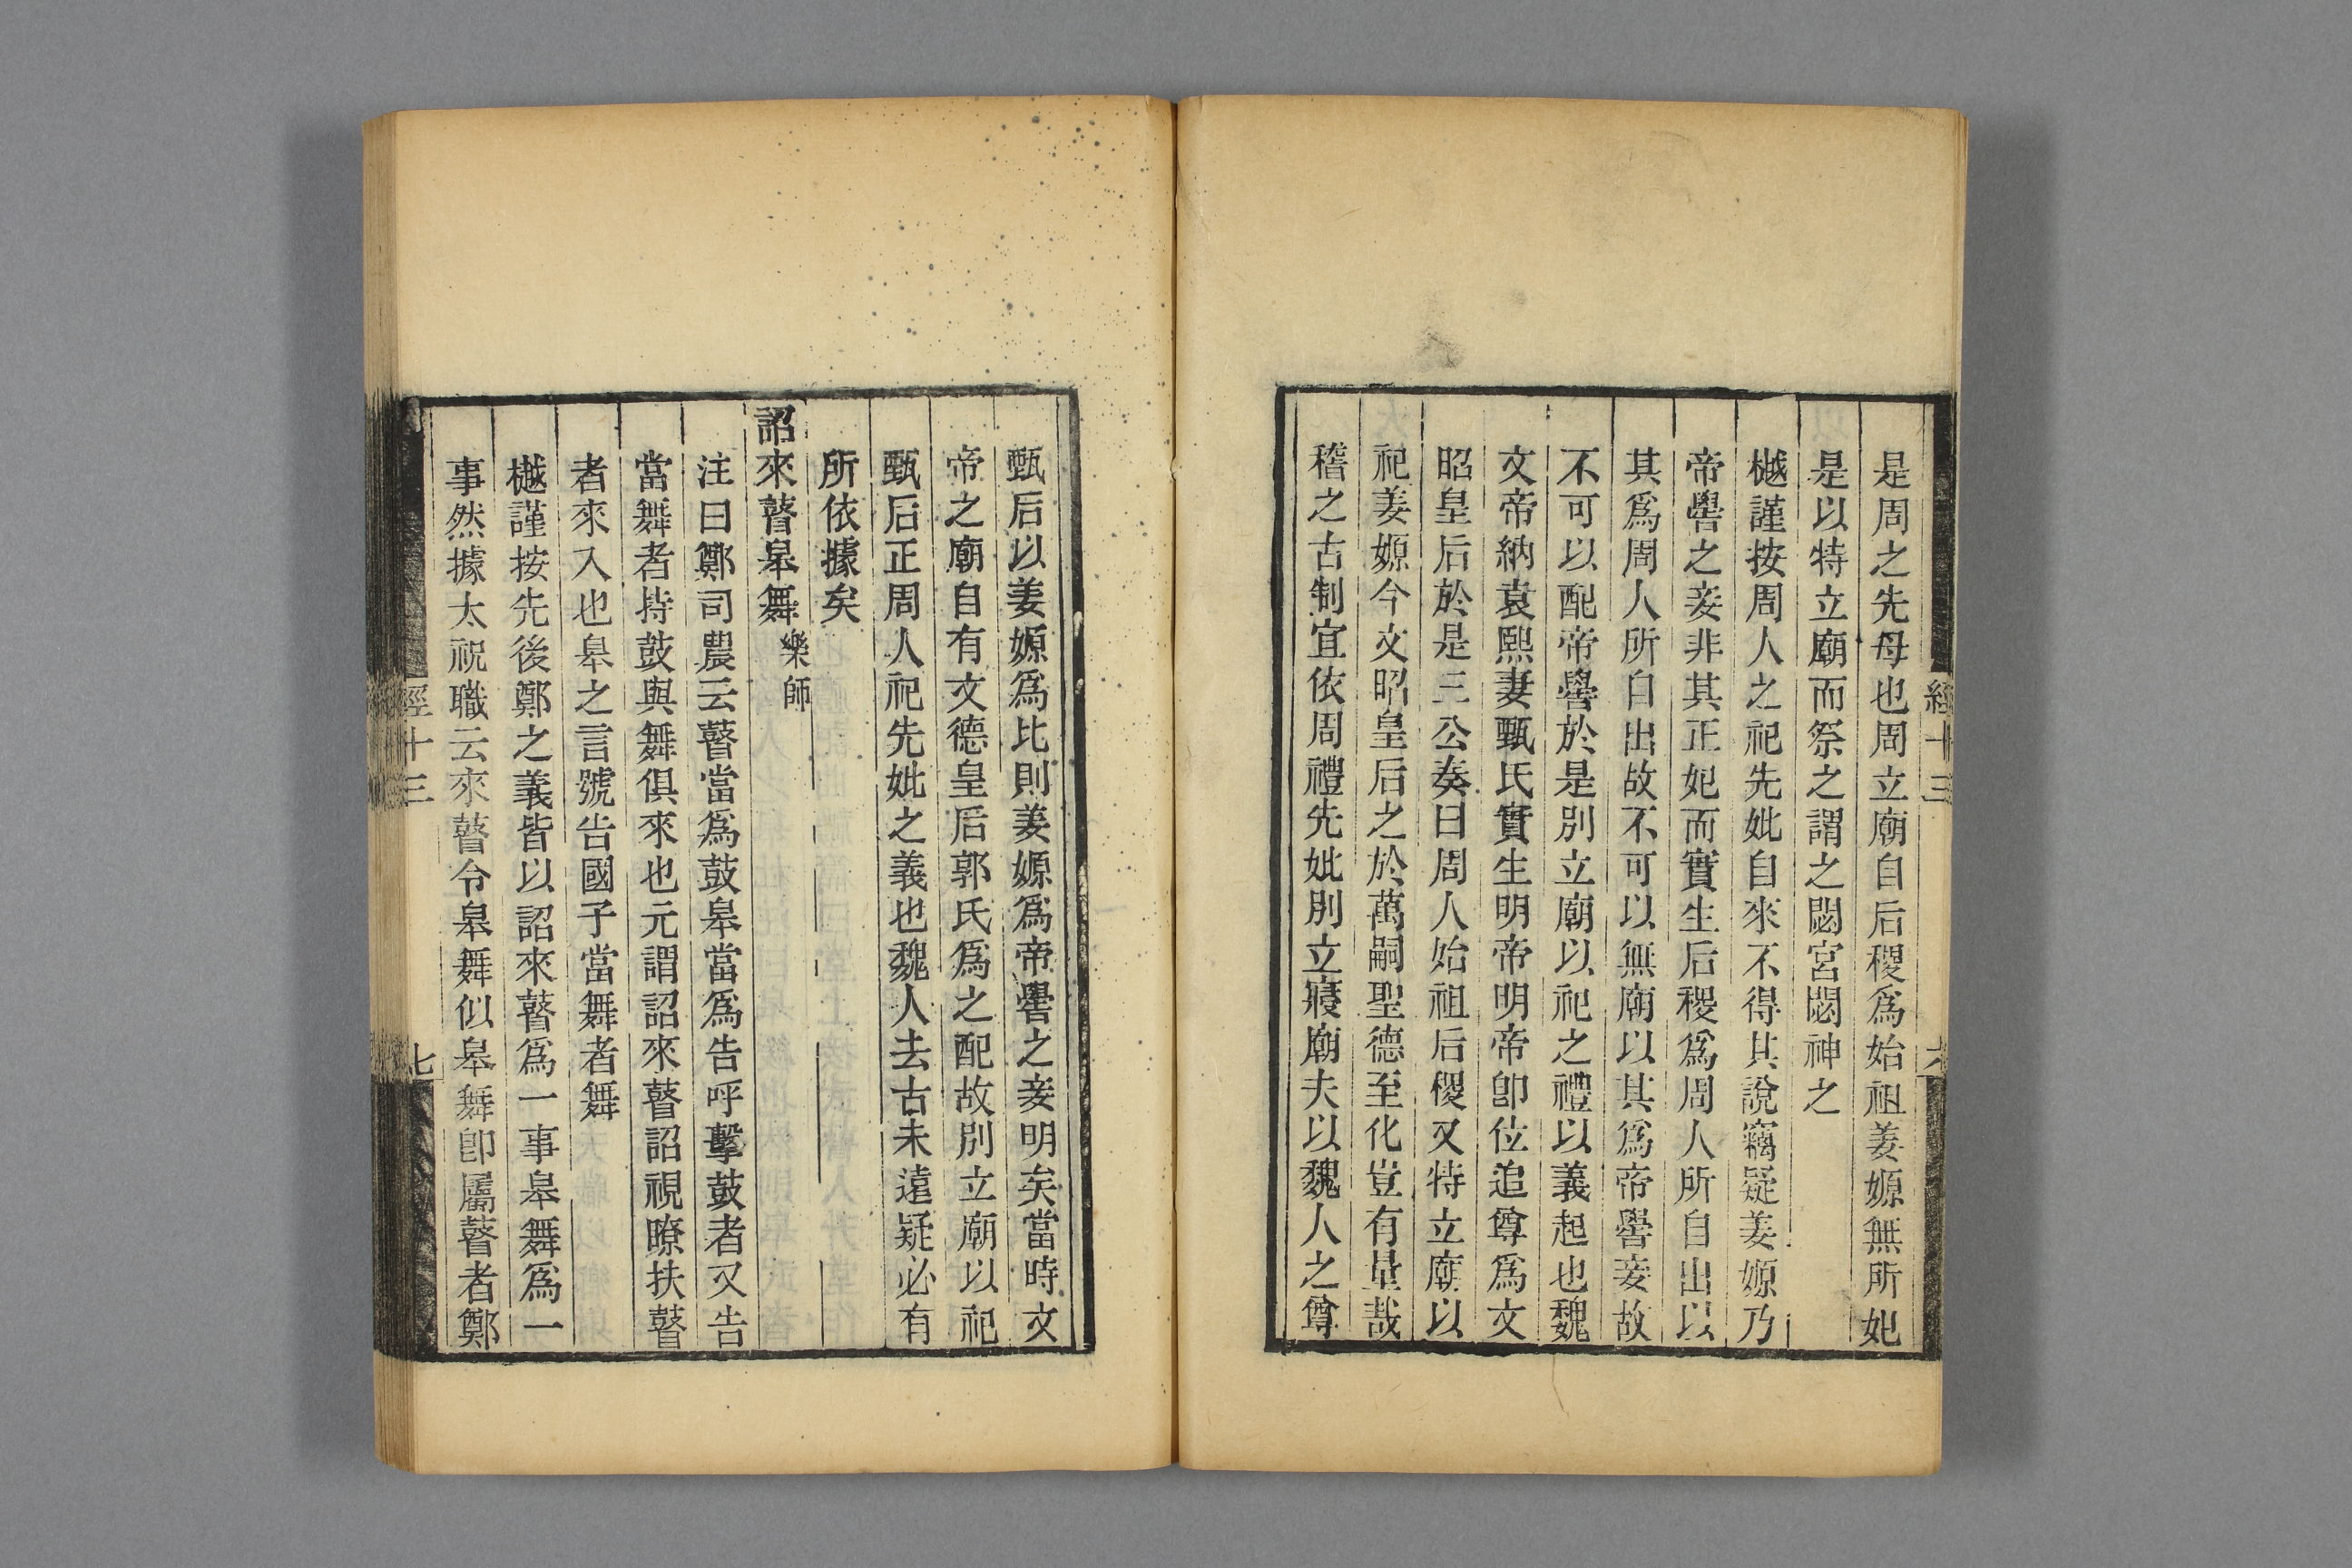 是周之先母也周立廟自后稷爲始祖姜嫄無所妃
是以特立廟而祭之謂之閟宮閟神之
樾謹按周人之祀先妣自來不得其說竊疑姜嫄乃
帝嚳之妾非其正妃而實生后稷爲周人所自出以
其爲周人所自出故不可以無廟以其爲帝嚳妾故
不可以配帝嚳於是別立廟以祀之禮以義起也魏
文帝納袁熙妻甄氏實生明帝明帝卽位追尊爲文
昭皇后於是三公奏曰周人始祖后稷又特立廟以
祀姜嫄今文昭皇后之於萬嗣聖德至化豈有量哉
稽之古制宜依周禮先妣別立寢廟夫以魏人之尊
經十三
六
甄后以姜嫄爲比則姜嫄爲帝嚳之妾明矣當時文
帝之廟自有文德皇后郭氏爲之配故別立廟以祀
甄后正周人祀先妣之義也魏人去古未遠疑必有
所依據矣
詔來瞽皋舞樂師
注曰鄭司農云瞽當爲鼓皋當爲告呼擊鼓者又告
當舞者持鼓與舞俱來也元謂詔來瞽詔視瞭扶瞽
者來入也皋之言號告國子當舞者舞
樾謹按先後鄭之義皆以詔來瞽爲一事皋舞爲一
事然據太祝職云來瞽令皋舞似皋舞卽屬瞽者鄭
經十三
七